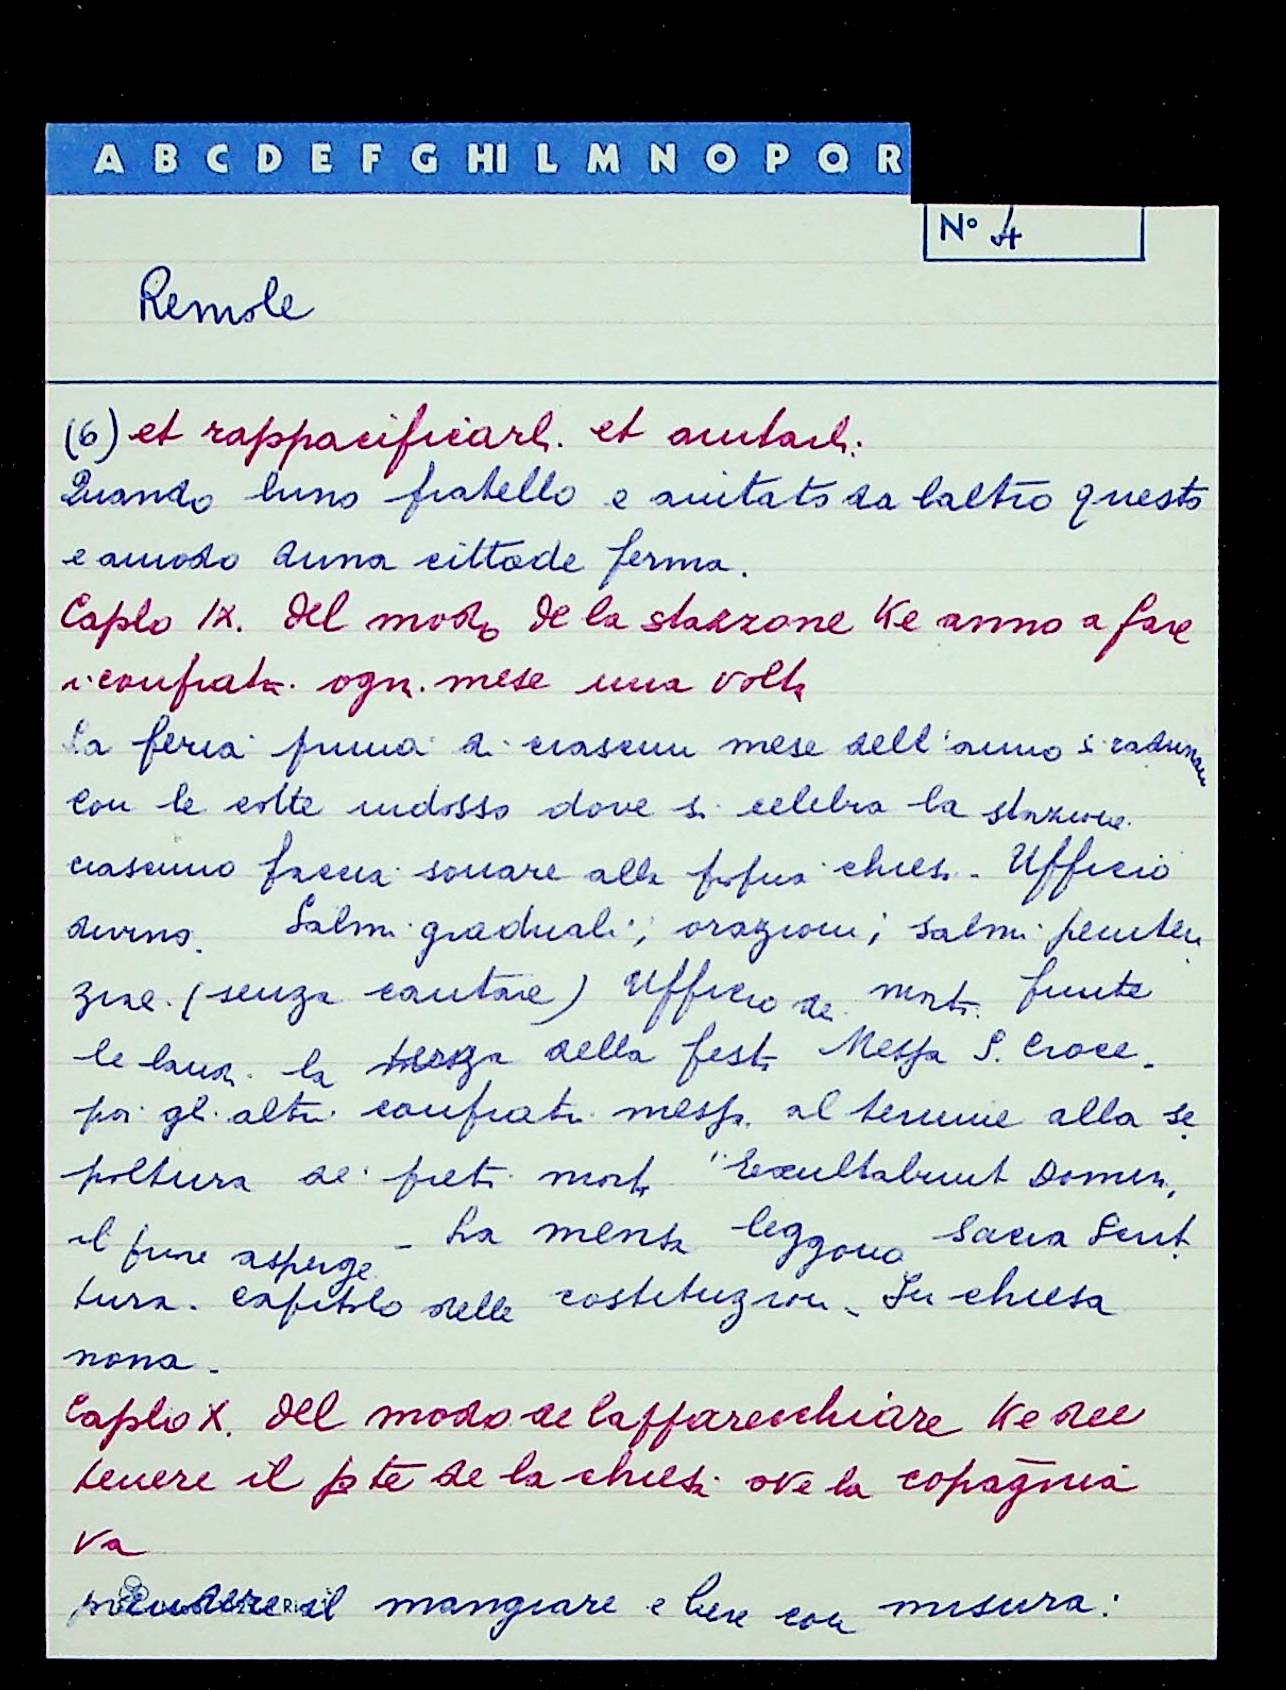 A B C D E F G HI L M N O P Q R
N° 4
Remole
(6) et rappacificarli. et aiutarli:
Quando luno fratello e aiutato da laltro questo
e amodo duna cittade ferma.
Caplo IX. del modo de la stazzone Ke anno a fare
i confrati. ogni mese una volta
La feria prima di ciascun mese dell'anno si radunan
con le cotte indosso dove si celebra la stazione.
ciascuno faccia sonare alla propria chiesa. Ufficio
divino. Salmi graduali; orazioni; salmi peniten
ziae. (senza cantare) Ufficio dei morti. finite
le laudi. la terza della festa Messa S. Croce.
poi gli altri confrati messa. al termine alla se
poltura dei preti morti "Exultabunt Domin.
il priore asperge - La mensa leggono Sacra Scrit
tura. Capitolo delle costituzioni. In chiesa
nona.
Caplo X. del modo de lapparecchiare Ke dee
tenere il p te de la chiesa ove la copāgnia
va
prendere il mangiare e bere con misura: